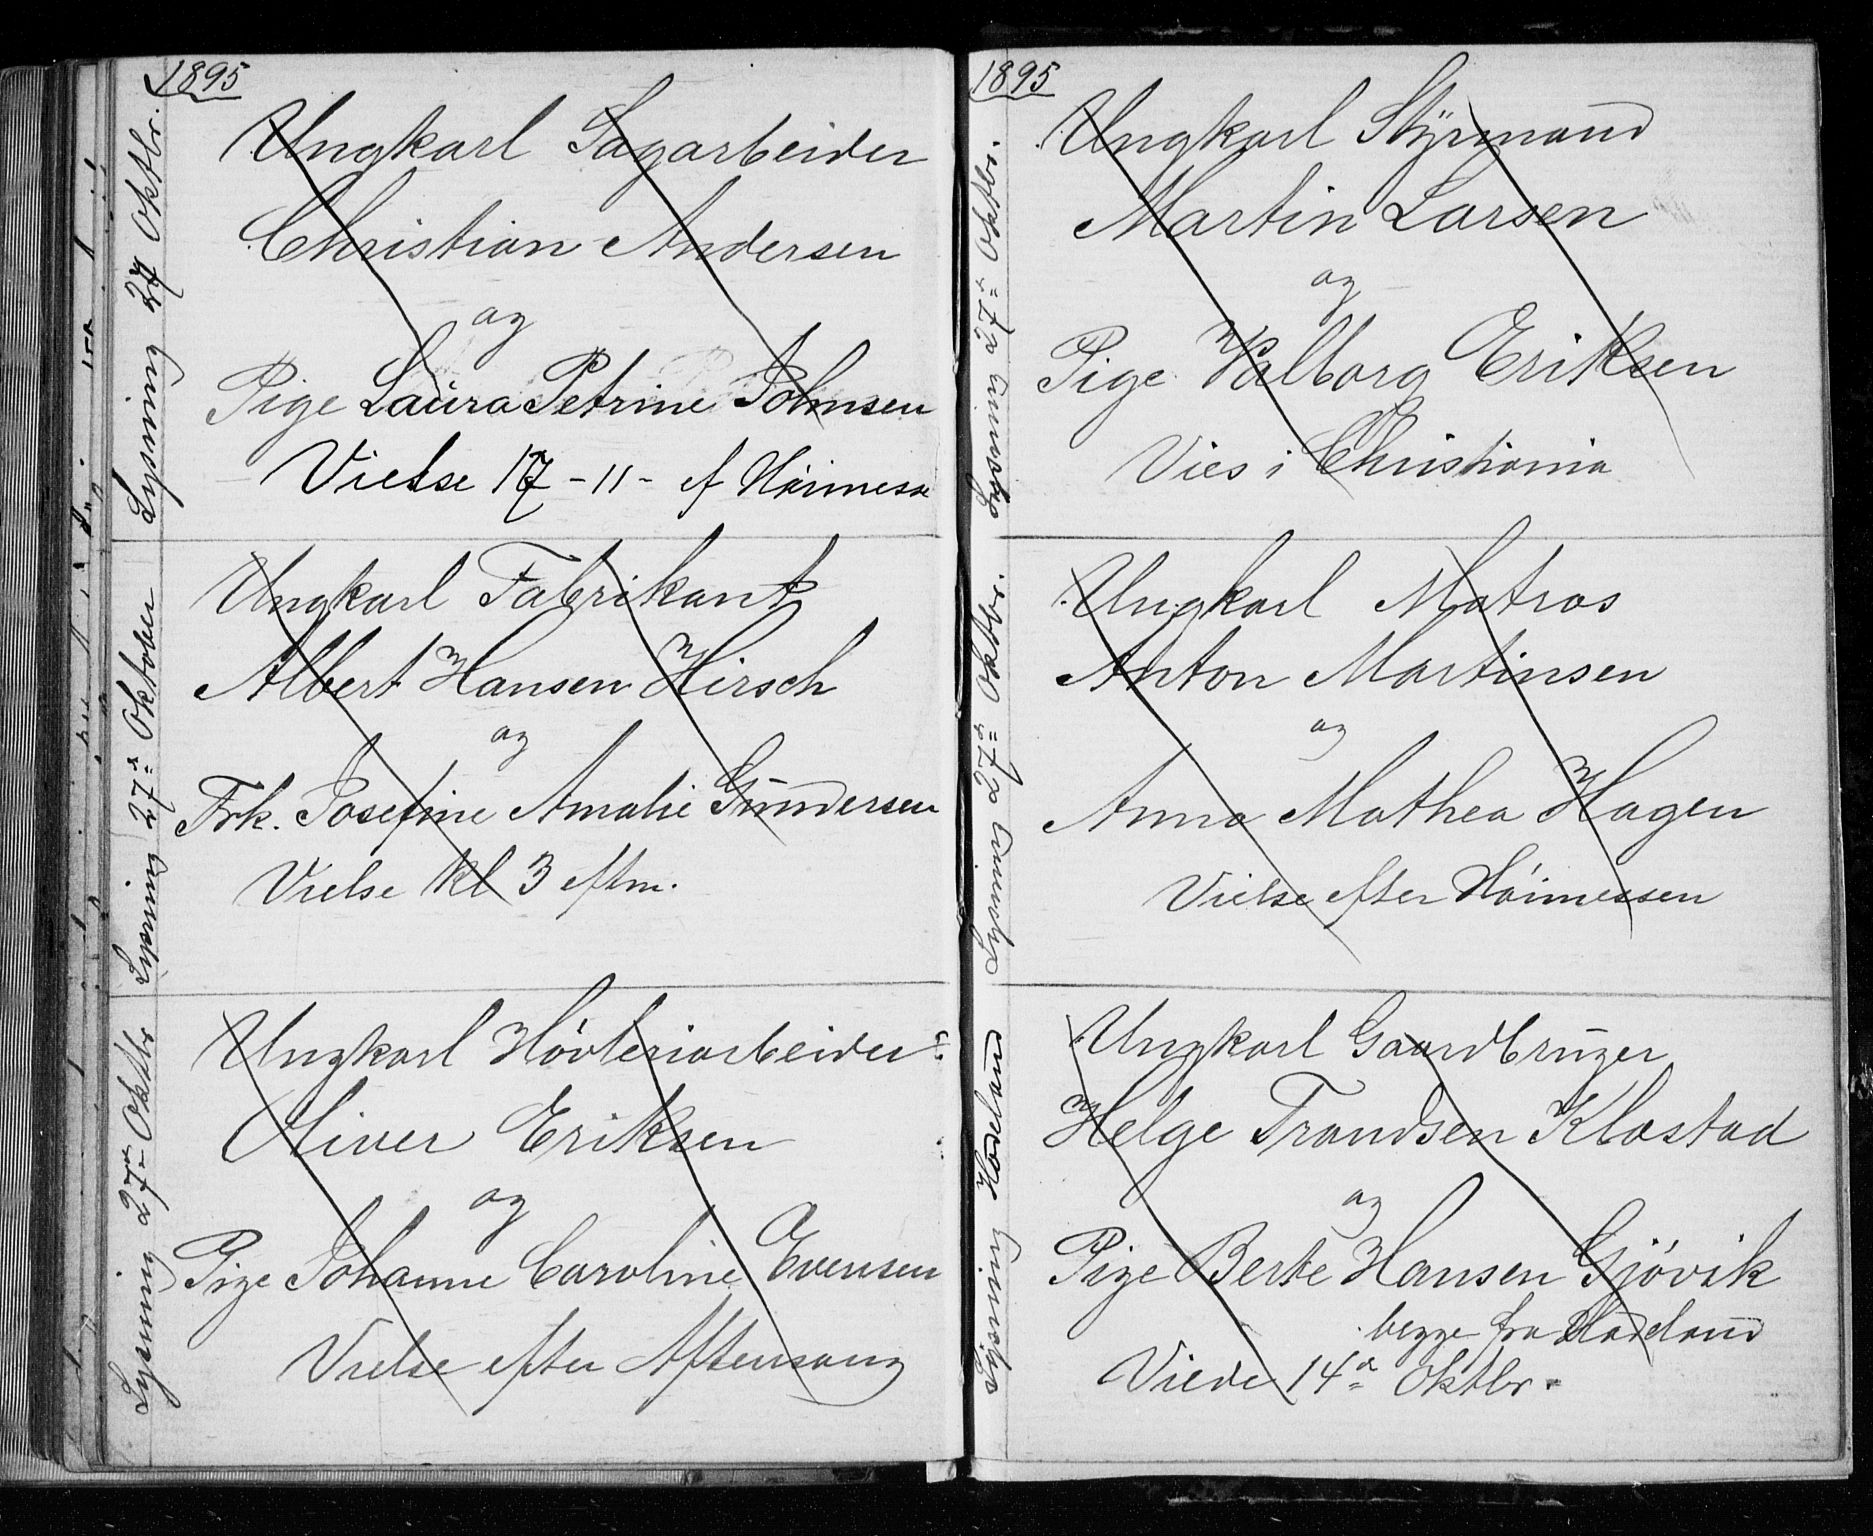 1895
Lysning 27 Oktbr.
Ungkarl Sagarbeider
Christian Andersen
og
Pige Laura Petrine Johnsen
Vielse 17 - 11 - ef Höimesse
Lysning 27d= Oktober
Ungkarl Fabrikant
Albert Hansen Hirsch
og
Frk. Josefine Amalie Gundersen
Vielse Kl 3 eftm.
Lysning 27d= Oktbr
Ungkarl Hövleriarbeider
Oliver Eriksen
og
Pige Johanne Caroline Evensen
Vielse efter Aftensang
1895
Lysning 27d= Oktbr.
Ungkarl Styrmand
Martin Larsen
og
Pige Valborg Eriksen
Vies i Christiania
Lysning 27d= Oktbr.
Ungkarl Matros
Anton Martinsen
og
Anna Mathea Hagen
Vielse efter Höimessen
Lysning Hadeland
Ungkarl Gaardbruger
Helge Trondsen Klastad
og
Pige Berte Hansen Gjövik
begge fra Hadeland
Viede 14d= Oktbr.